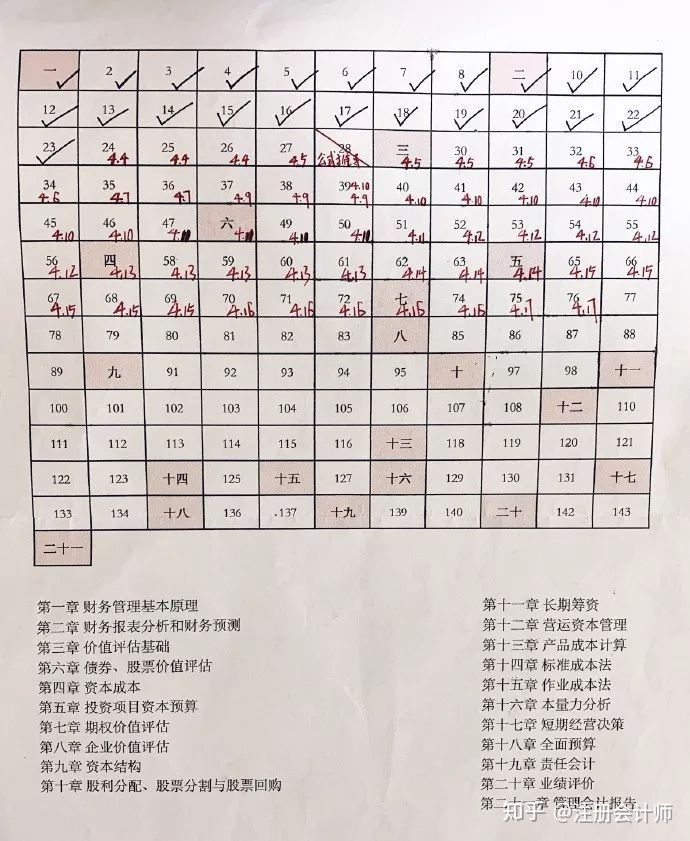 一 2 3 4 5 6 7 8 二 10 11
12 13 14 15 16 17 18 19 20 21 22
23 24 25 26 27 28 三 30 31 32 33
4.4 4.4 4.4 4.5 公式 4.5 4.5 4.5 4.6 4.6
34 35 36 37 38 39 4.10 40 41 42 43 44
4.6 4.7 4.7 4.9 4.9 4.9 4.10 4.10 4.10 4.10 4.10
45 46 47 六 49 50 51 52 53 54 55
4.10 4.10 4.10 4.10 4.10 4.10 4.11 4.12 4.12 4.12 4.12
56 四 58 59 60 61 62 63 五 65 66
4.12 4.13 4.13 4.13 4.13 4.13 4.14 4.14 4.14 4.15 4.15
67 68 69 70 71 72 七 74 75 76 77
4.15 4.15 4.15 4.16 4.16 4.16 4.16 4.16 4.17 4.17
78 79 80 81 82 83 八 85 86 87 88
89 九 91 92 93 94 95 十 97 98 十一
100 101 102 103 104 105 106 107 108 十二 110
111 112 113 114 115 116 十三 118 119 120 121
122 123 十四 125 十五 127 十六 129 130 131 十七
133 134 十八 136 .137 十九 139 140 二十 142 143
二十一
第一章 财务管理基本原理
第二章 财务报表分析和财务预测
第三章 价值评估基础
第六章 债券、股票价值评估
第四章 资本成本
第五章 投资项目资本预算
第七章 期权价值评估
第八章 企业价值评估
第九章 资本结构
第十章 股利分配、股票分割与股票回购
第十一章 长期筹资
第十二章 营运资本管理
第十三章 产品成本计算
第十四章 标准成本法
第十五章 作业成本法
第十六章 本量力分析
第十七章 短期经营决策
第十八章 全面预算
第十九章 责任会计
第二十章 业绩评价
第二十一章 管理会计报告
知乎 @注册会计师